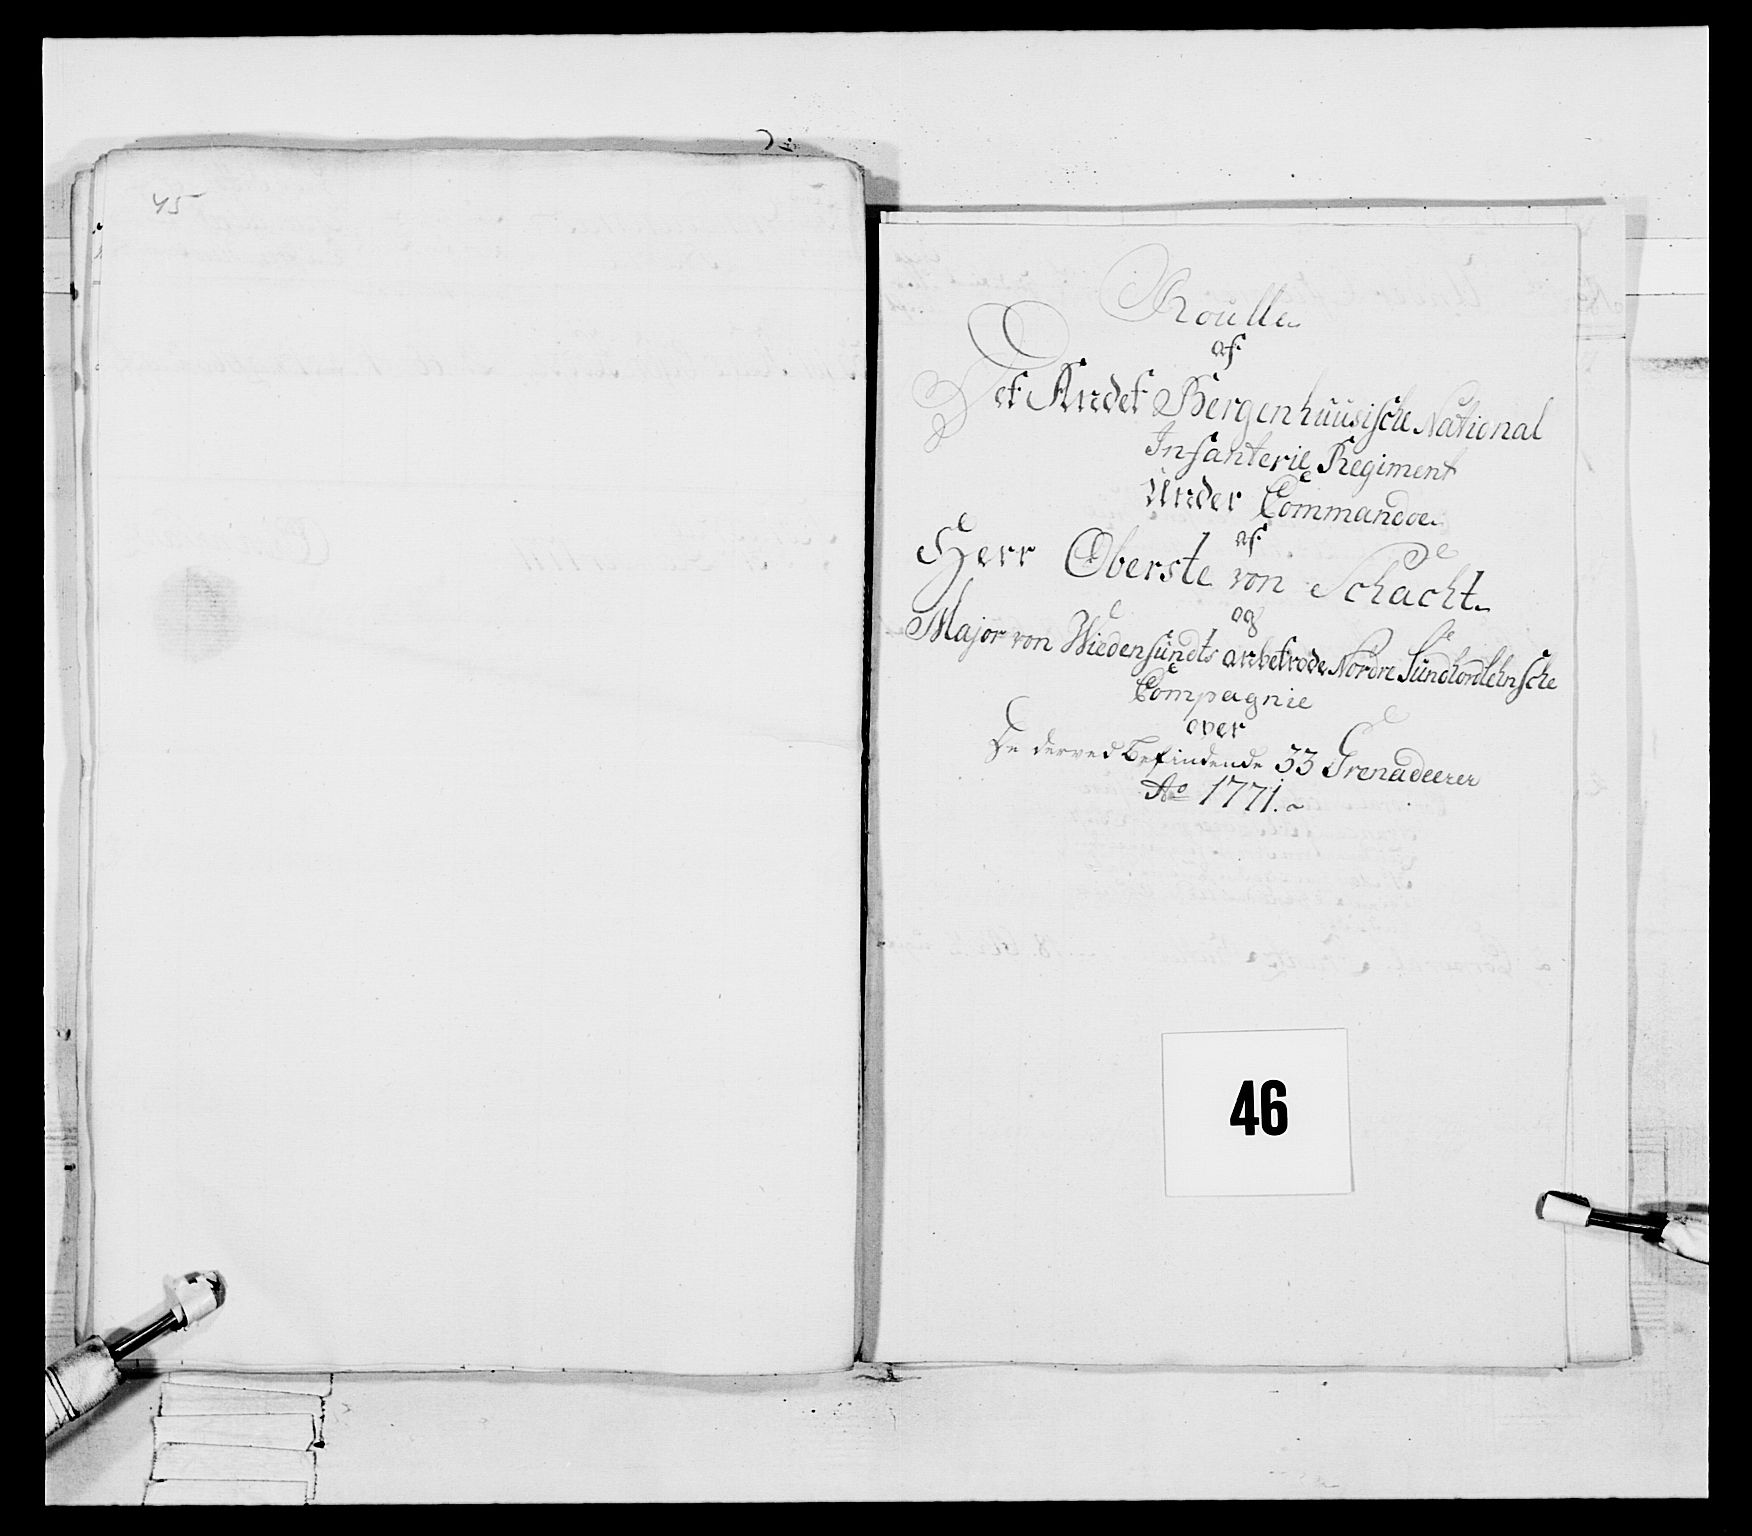 45
Roulle
af
Det Andet Bergenhuusische National
Infanterie Regiment
Under Commando
af
Herr Oberste von Schacht
og
Major von Wiedensundts anbetrode Nordre Sundhordlehnsche
Compagnie
over
De derved befindende 33 Grenadeerer
Ao 1771.
46